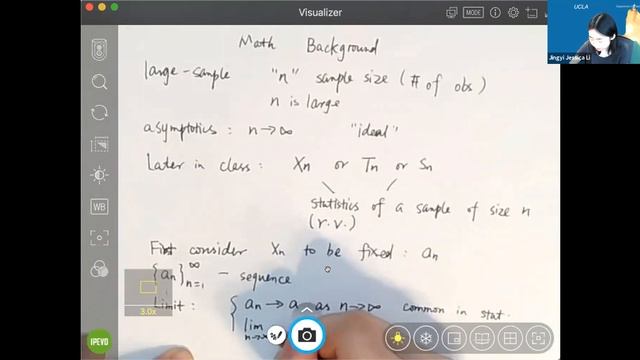 Visualizer
MODE
UCLA
Jingyi Jessica Li
Math Background
large-sample "n" sample size (# of obs)
n is large
asymptotics: n→∞ "ideal"
Later in class: Xn or Tn or Sn
statistics of a sample of size n
(r.v.)
First consider Xn to be fixed: an
{an}∞n=1 – sequence
Limit: { an → a as n→∞ common in stat.
lim
n→∞
WB
3.0x
IPEVO